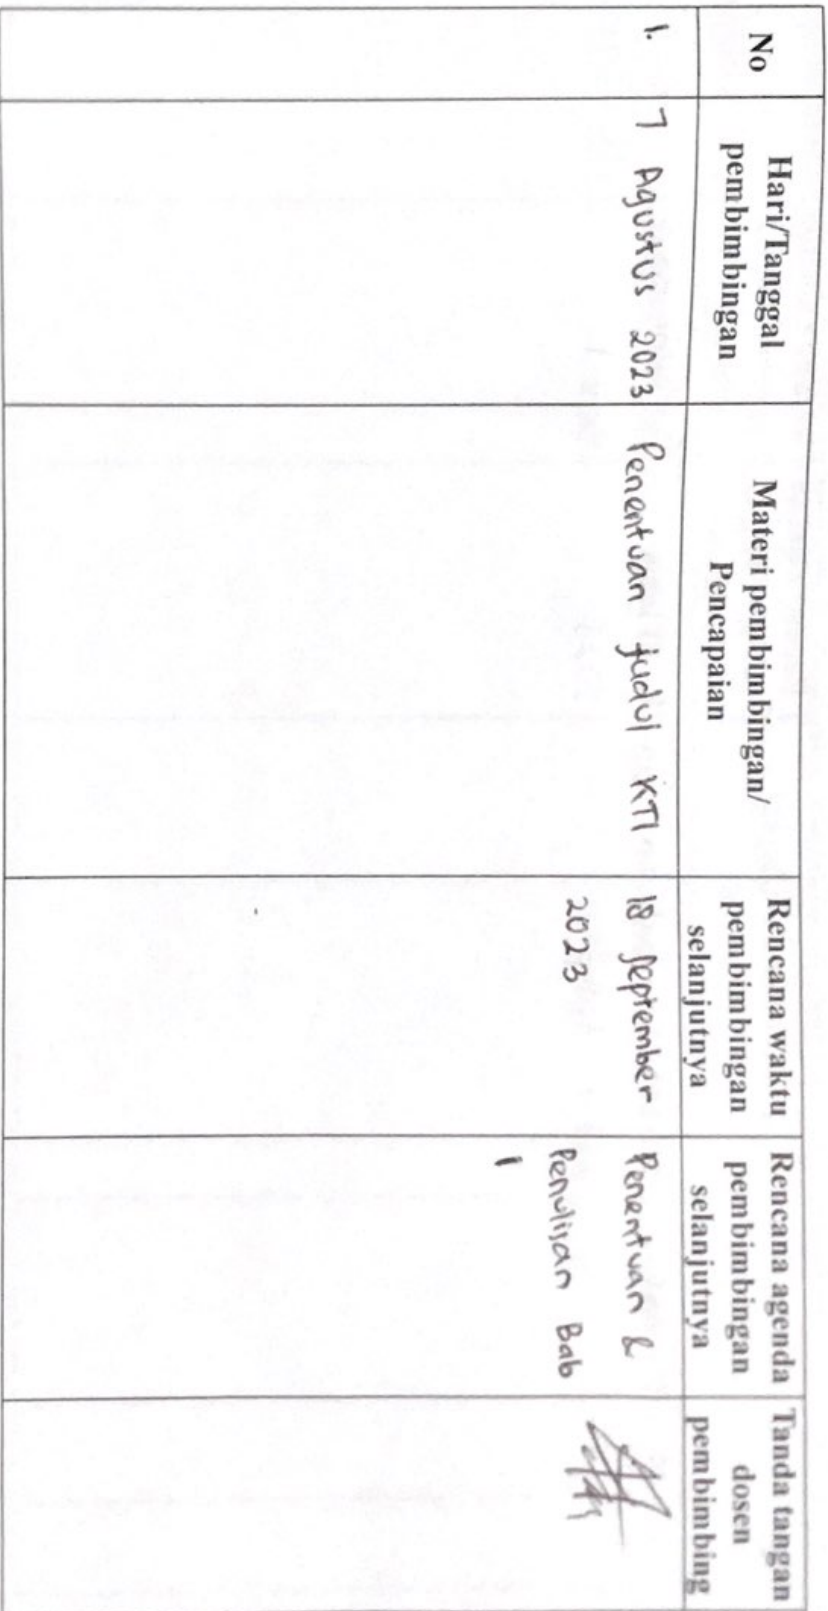 No
Hari/Tanggal
pembimbingan
Materi pembimbingan/
Pencapaian
Rencana waktu
pembimbingan
selanjutnya
Rencana agenda
pembimbingan
selanjutnya
Tanda tangan
dosen
pembimbing
1.
7 Agustus 2023
Penentuan judul KTI
18 September
2023
Penentuan &
Penulisan Bab
1